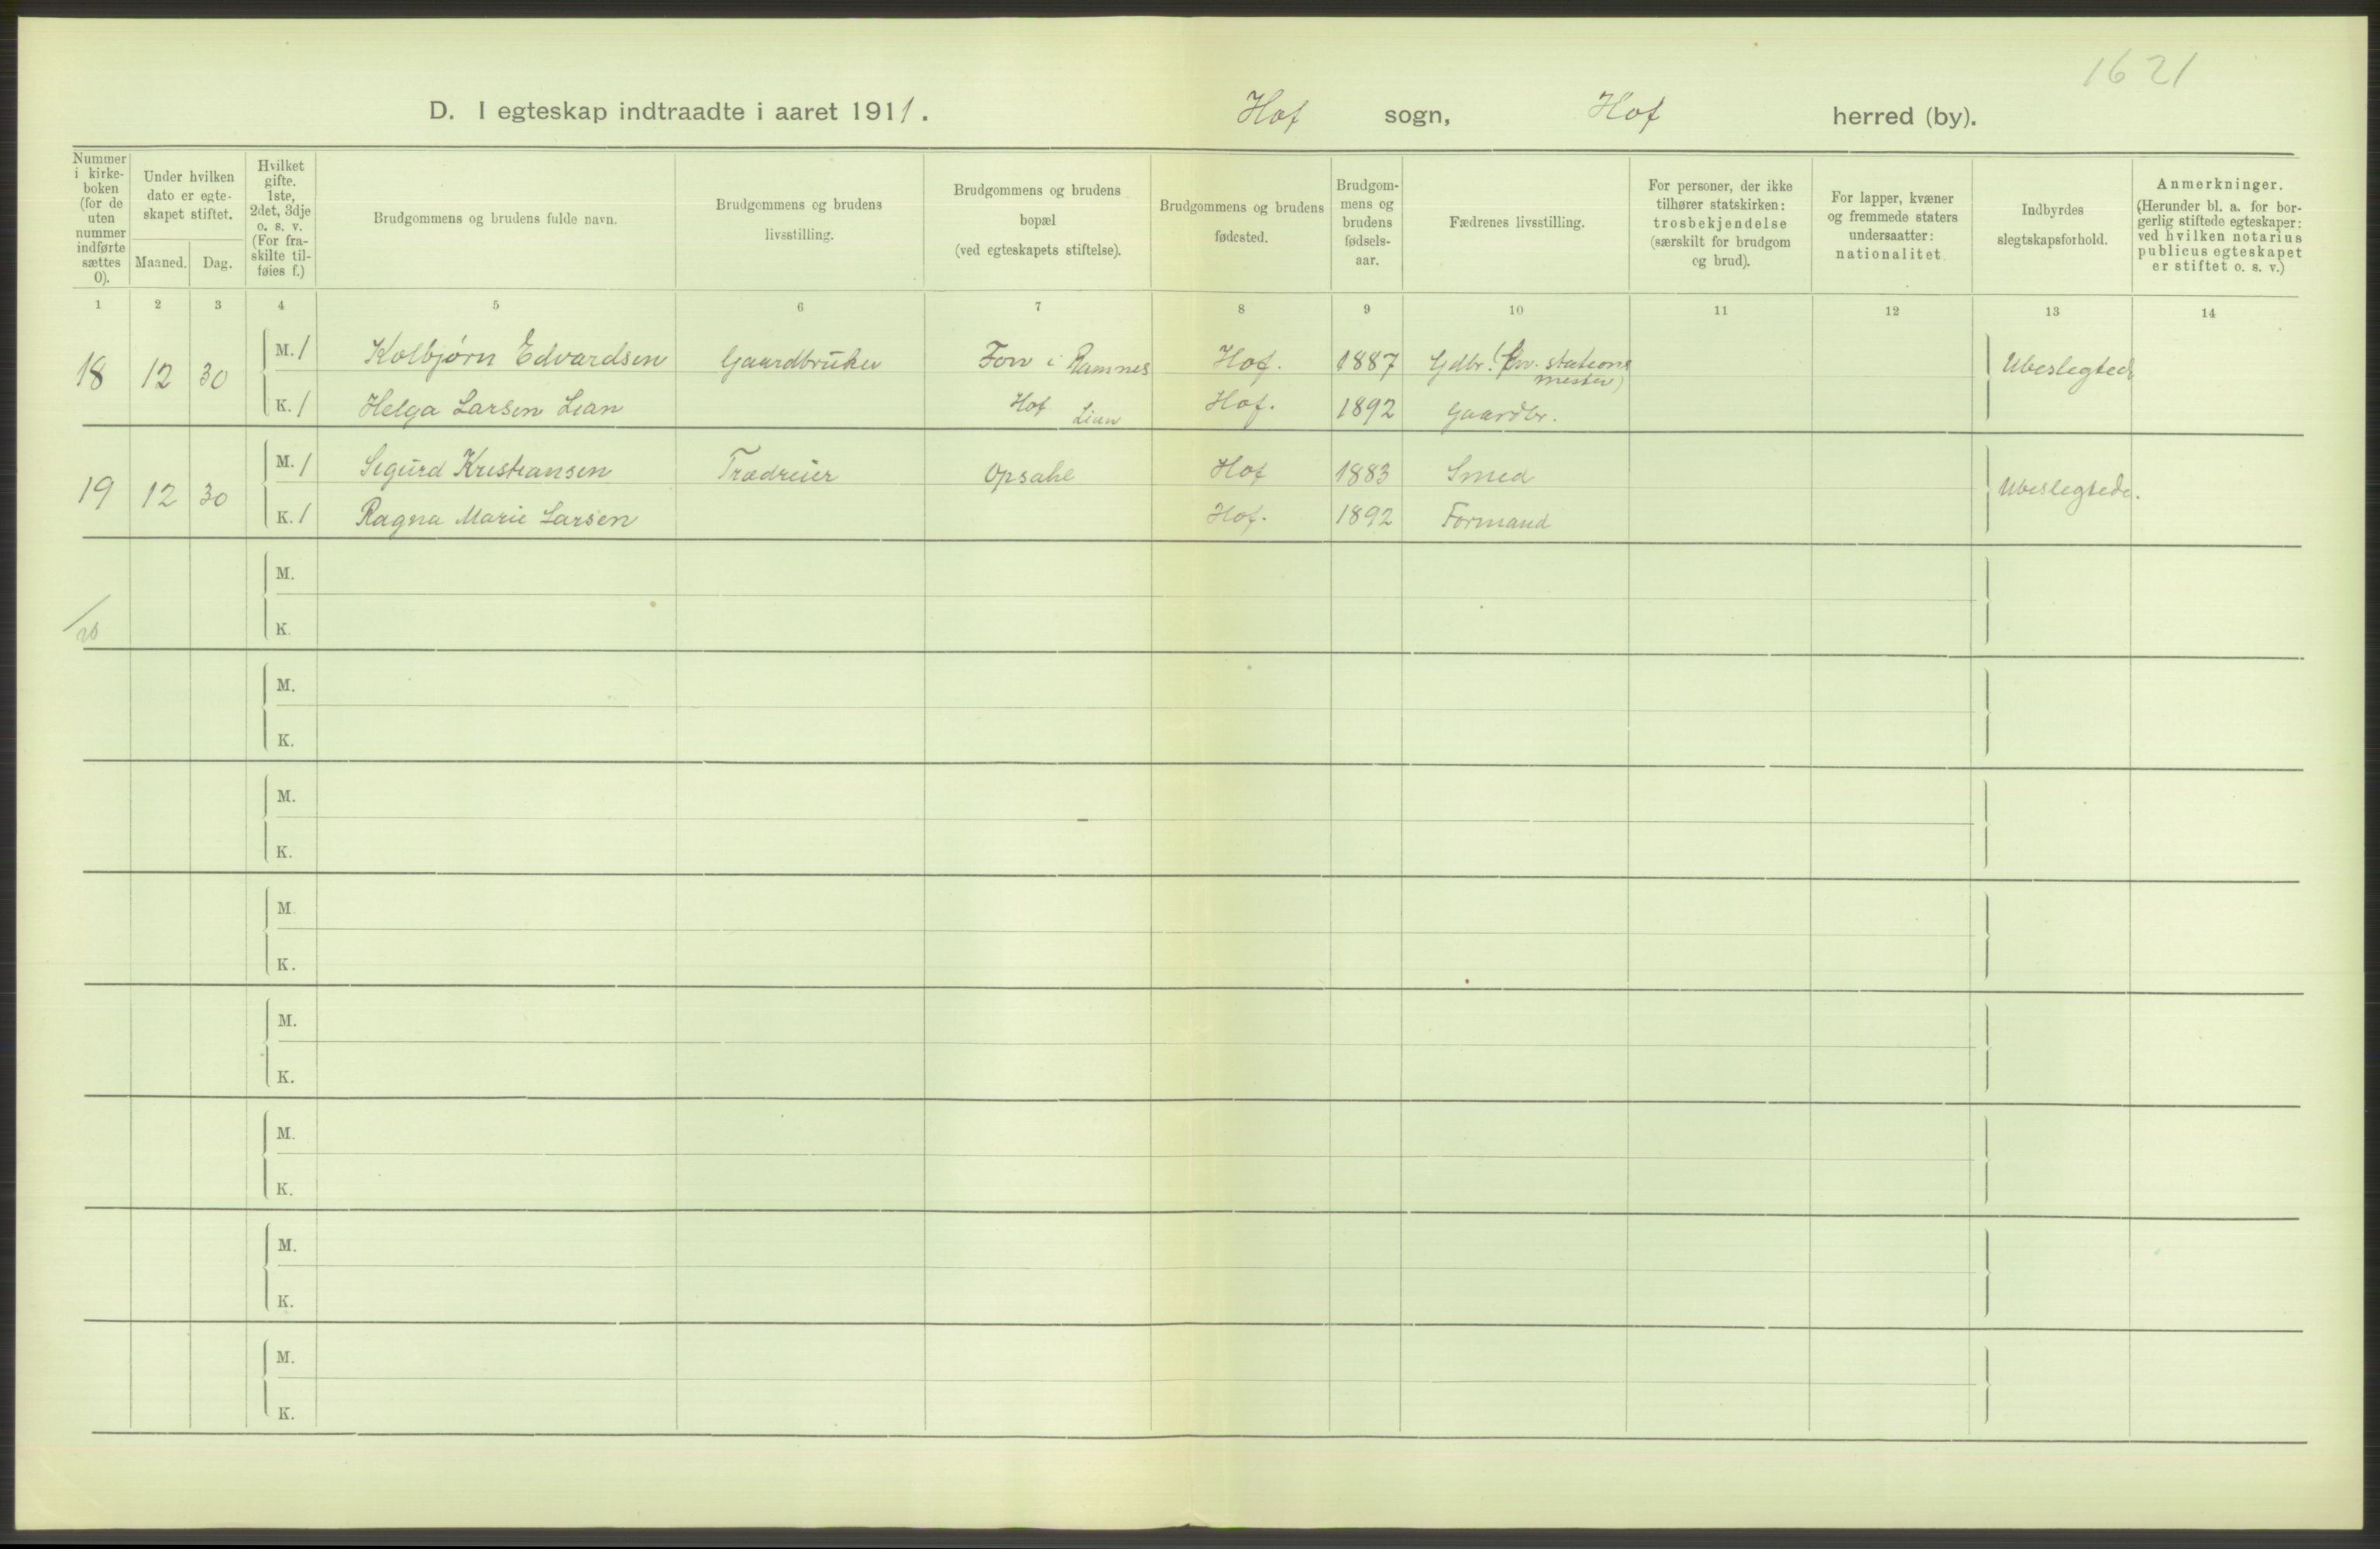 1621
D. I egteskap indtraadte i aaret 1911. Hof sogn, Hof herred (by).
Nummer i kirkeboken (for de uten nummer indførte sættes 0).
Under hvilken dato er egteskapet stiftet.
Maaned. Dag.
Hvilket gifte. 1ste, 2det, 3dje o. s. v. (For fraskilte tilføies f.)
Brudgommens og brudens fulde navn.
Brudgommens og brudens livsstilling.
Brudgommens og brudens bopæl (ved egteskapets stiftelse).
Brudgommens og brudens fødested.
Brudgommens og brudens fødselsaar.
Fædrenes livsstilling.
For personer, der ikke tilhører statskirken: trosbekjendelse (særskilt for brudgom og brud).
For lapper, kvæner og fremmede staters undersaatter: nationalitet.
Indbyrdes slegtskapsforhold.
Anmerkninger. (Herunder bl. a. for borgerlig stiftede egteskaper: ved hvilken notarius publicus egteskapet er stiftet o. s. v.)
1 2 3 4 5 6 7 8 9 10 11 12 13 14
18 12 30 M. 1 Kolbjørn Edvardsen Gaardbruker Fon i Ramnes Hof. 1887 Gdbr. stationsmester) Ubeslegtede
K. 1 Helga Larsen Lian Hof Lian Hof. 1892 Gaardbr.
19 12 30 M. 1 Sigurd Kristiansen Trædreier Opsahl Hof 1883 Smed Ubeslegtede.
K. 1 Ragna Marie Larsen Hof. 1892 Formand
M.
K.
M.
K.
M.
K.
M
K.
M.
K.
M.
K.
M.
K.
M.
K.